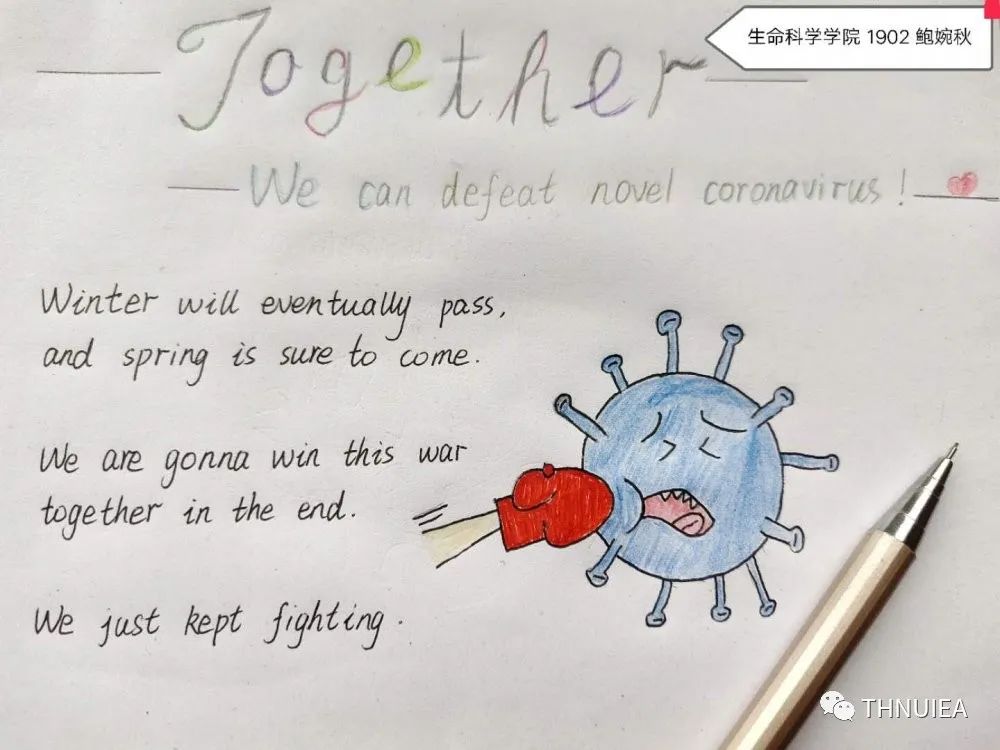 生命科学学院 1902 鲍婉秋
Together
We can defeat novel coronavirus!
Winter will eventually pass,
and spring is sure to come.
We are gonna win this war
together in the end.
We just kept fighting.
THNUIEA